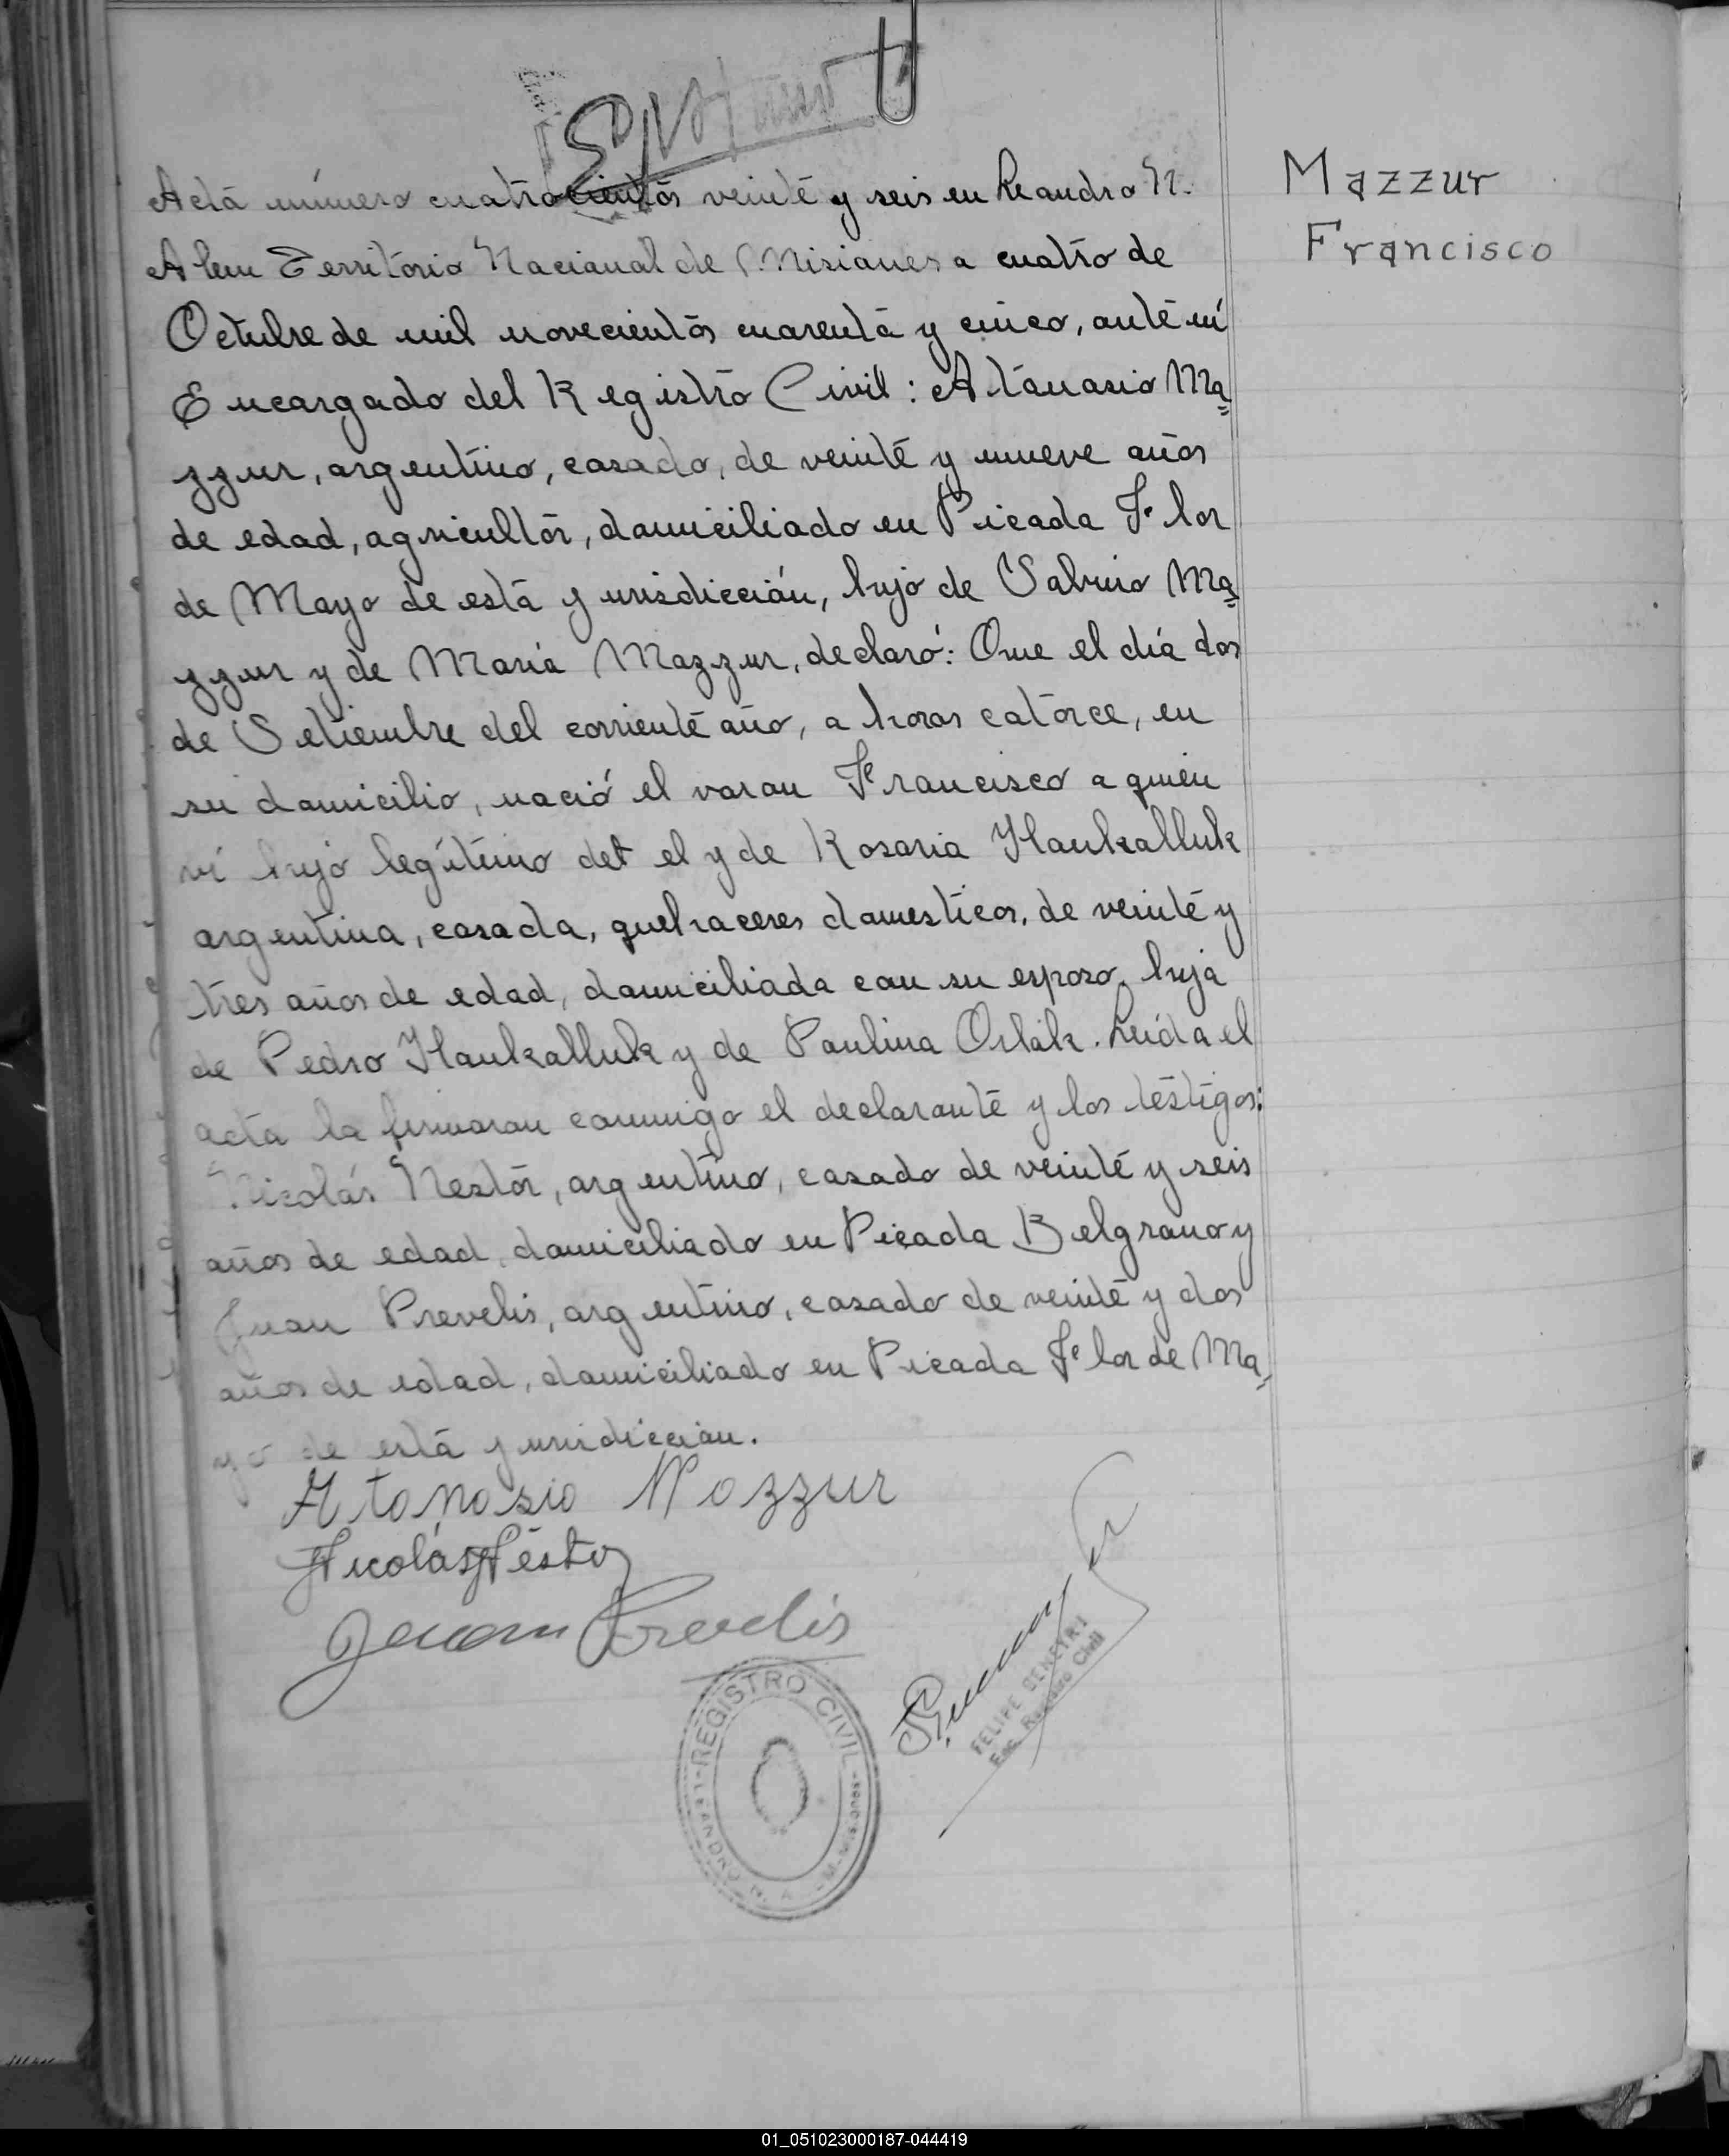 Mazzur
Francisco
Acta número cuatrocientos veinte y seis en Leandro N.
Alem Territorio Nacional de Misiones a cuatro de
Octubre de mil novecientos cuarenta y cinco, ante mí
Encargado del Registro Civil: Atanasio Ma=
zzur, argentino, casado, de veinte y nueve años
de edad, agricultor, domiciliado en Picada Flor
de Mayo de esta jurisdicción, hijo de Sabino Ma=
zzur y de María Mazzur, declaró: Que el día dos
de Setiembre del corriente año, a horas catorce, en
su domicilio, nació el varon Francisco a quien
vi hijo legítimo det el y de Rosaria Haukalluk
argentina, casada, quehaceres domesticos, de veinte y
tres años de edad, domiciliada con su esposo, hija
de Pedro Haukalluk y de Paulina Orlak. Leída el
acta la firmaron conmigo el declarante y los testigos:
Nicolás Nestor, argentino, casado de veinte y seis
años de edad, domiciliado en Picada Belgrano y
Juan Prevelis, argentino, casado de veinte y dos
años de edad, domiciliado en Picada Flor de Ma=
yo de esta jurisdiccion.
Atanasio Mazzur
Nicolás Néstor
Juan Prevelis
FELIPE DEMETRI
Enc. Registro Civil
REGISTRO CIVIL
LEANDRO N. A - M - Misiones
01_051023000187-044419